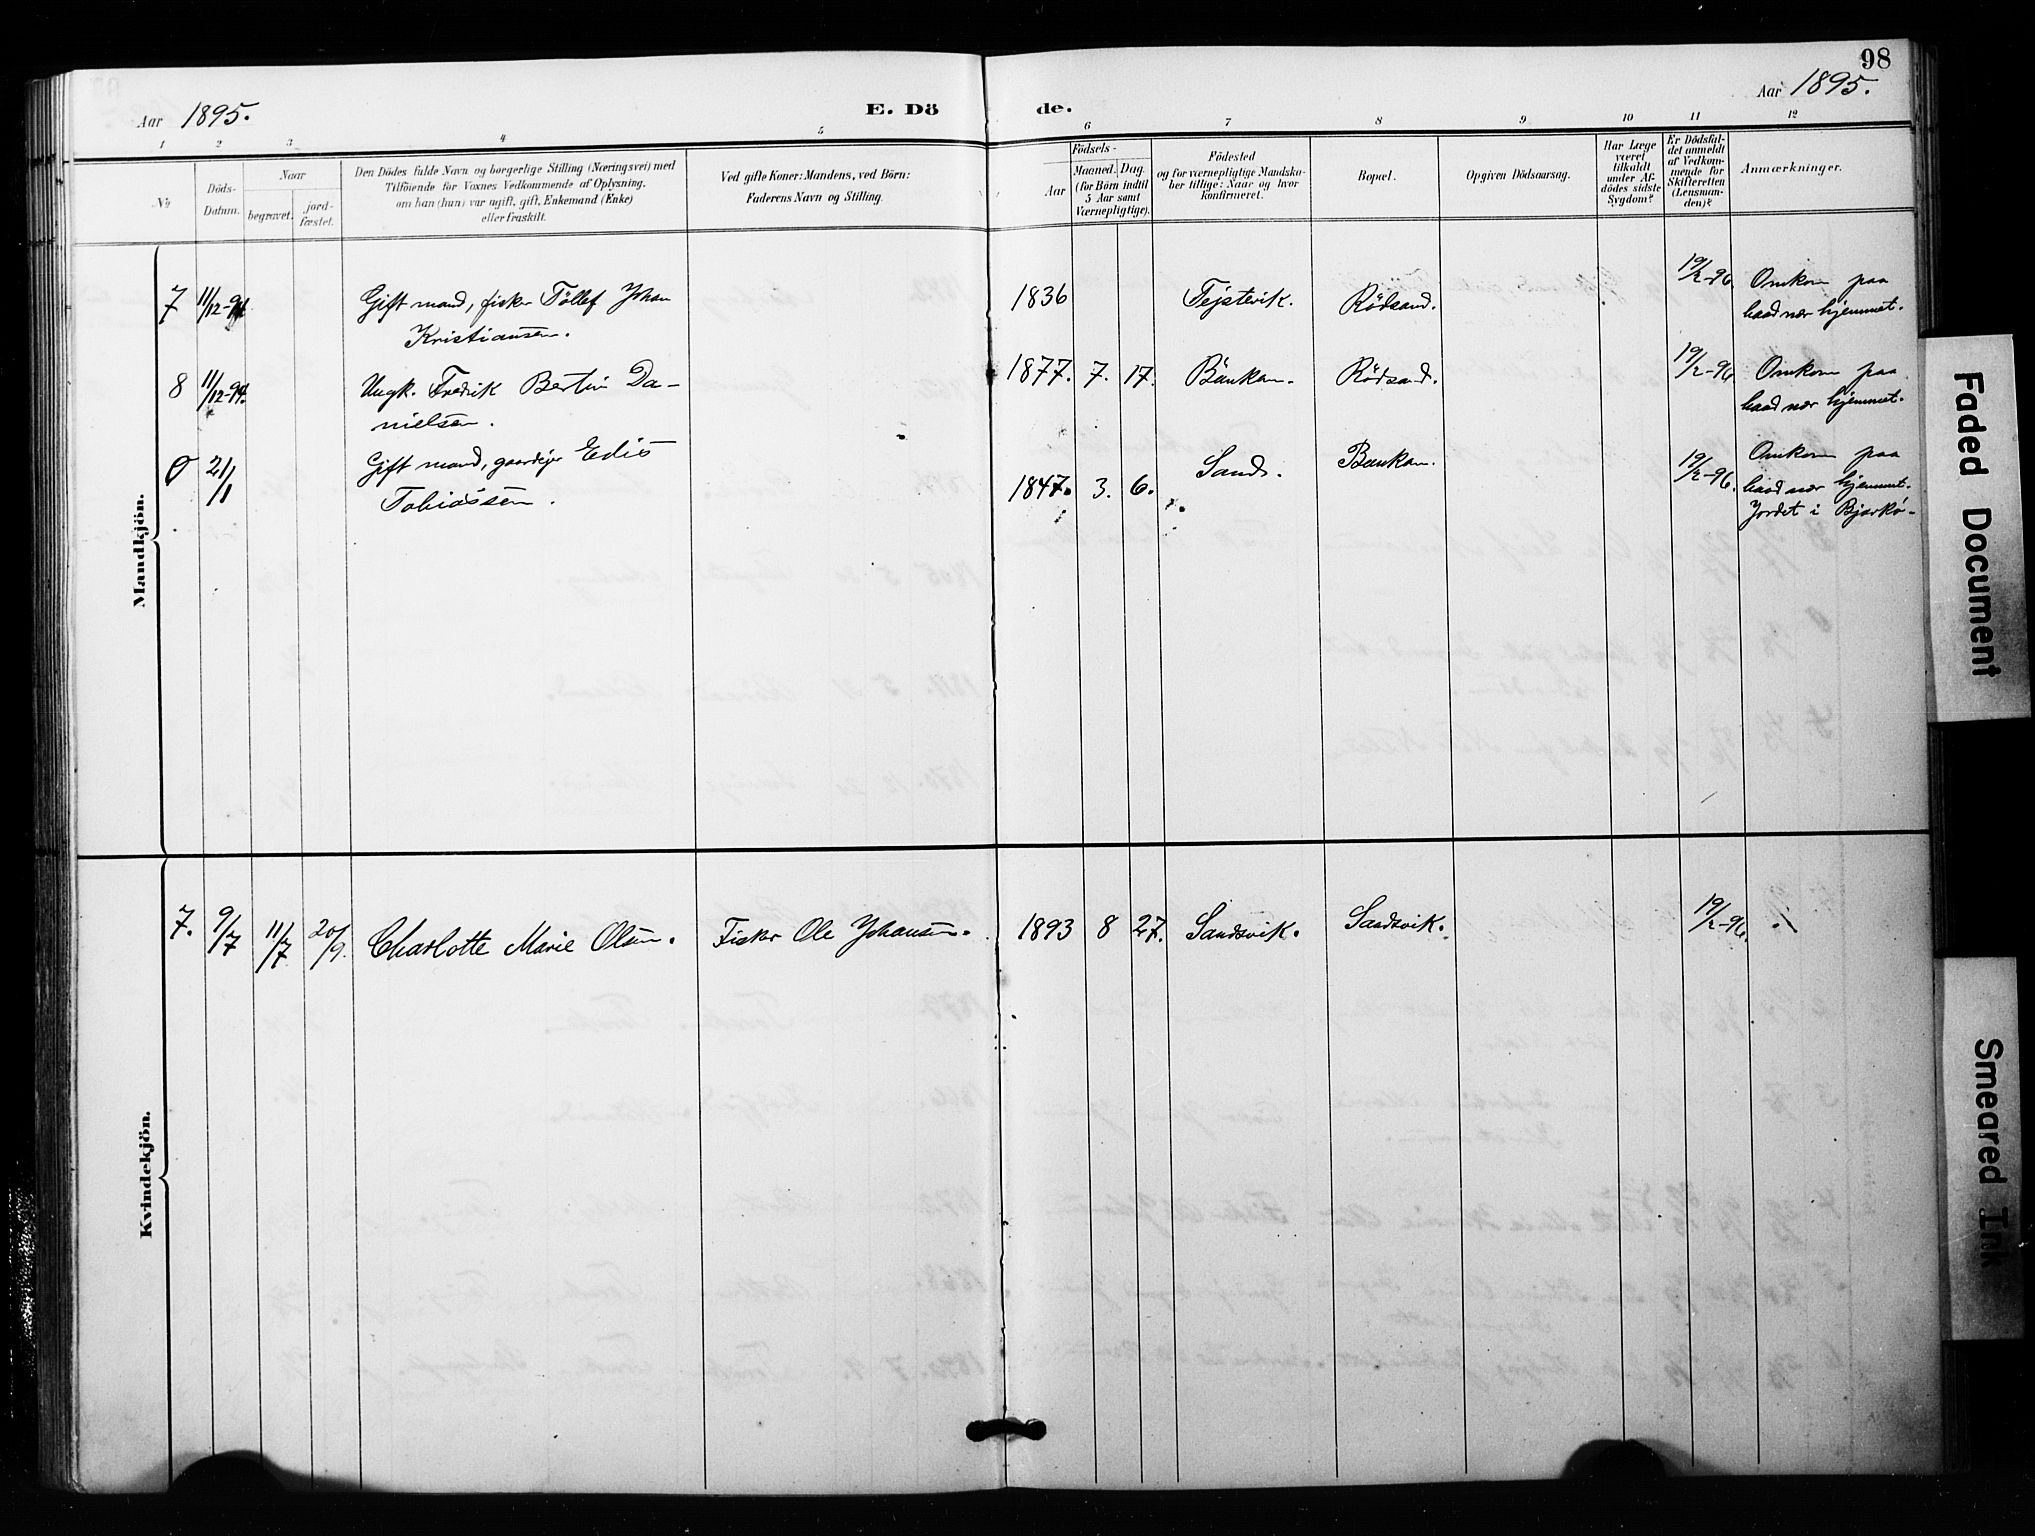 98
Aar 1895.
E. Dö de.
Aar 1895.
1 2 3 4 5 6 7 8 9 10 11 12
No
Döds-
Datum.
Naar
begravet.
jord-
fæstet.
Den Dödes fulde Navn og borgerlige Stilling (Næringsvei) med
Tilföiende for Voxnes Vedkommende af Oplysning,
om han (hun) var ugift, gift, Enkemand (Enke)
eller fraskilt.
Ved gifte Koner: Mandens, ved Börn:
Faderens Navn og Stilling.
Födsels-
Aar
Maaned. Dag.
(for Börn indtil
5 Aar samt
Værnepligtige).
Födested
og for værnepligtige Mandska-
ber tillige: Naar og hvor
konfirmeret.
Bopæl.
Opgiven Dödsaarsag.
Har Læge
været
tilkaldt
under Af-
dödes sidste
Sygdom?
Er Dödsfal-
det anmeldt
af Vedkom-
mende for
Skifteretten
(Lensman-
den)?
Anmærkninger.
Mandkjön.
7 11/12-94 Gift mand, fisker Töllef Johan 1836 Tejstevik. Rödsand. 19/2-96 Omkom paa
Kristiansen. baad nær hjemmet.
8 11/12-94. Ungk. Fredrik Bertin Da- 1877. 7. 17. Bankan. Rödsand. 19/2-96 Omkom paa
nielsen. baad nær hjemmet.
0 21/1 Gift mand, gaardejer Edis 1847. 3. 6. Sand. Bankan. 19/2-96. Omkom paa
Tobiassen. baad nær hjemmet.
Jordet i Bjarkö-
Kvindekjön.
7. 9/7 11/7 20/9. Charlotte Marie Olsen. Fisker Ole Johansen. 1893 8 27. Sandsvik. Sandsvik. 19/2-96.
Faded Document
Smeared Ink